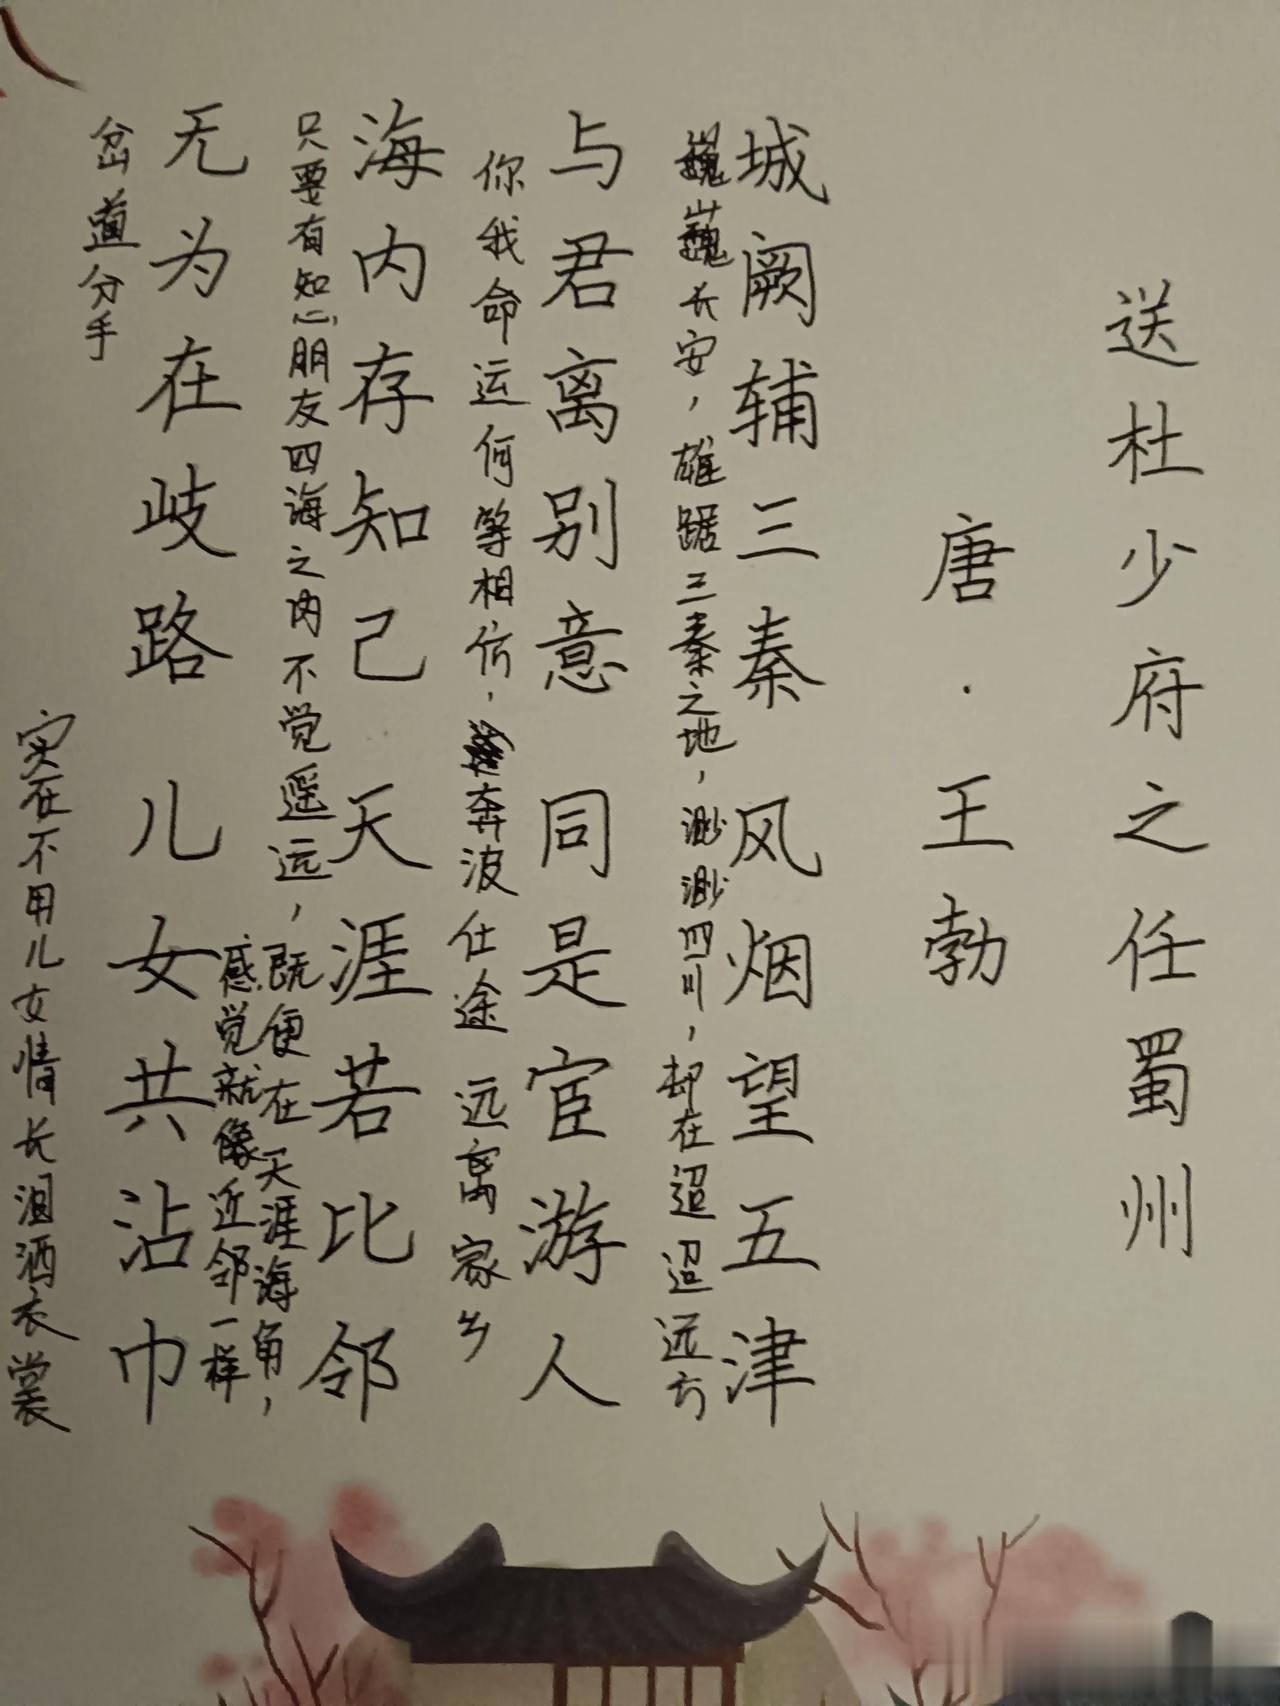 送杜少府之任蜀州
唐·王勃
城阙辅三秦 风烟望五津
巍巍长安，雄踞三秦之地，渺渺四川，却在迢迢远方
与君离别意 同是宦游人
你我命运何等相仿，奔波仕途 远离家乡
海内存知己 天涯若比邻
只要有知心朋友四海之内不觉遥远，
既便在天涯海角，
感觉就像近邻一样
无为在岐路 儿女共沾巾
岔道分手
实在不用儿女情长泪洒衣裳